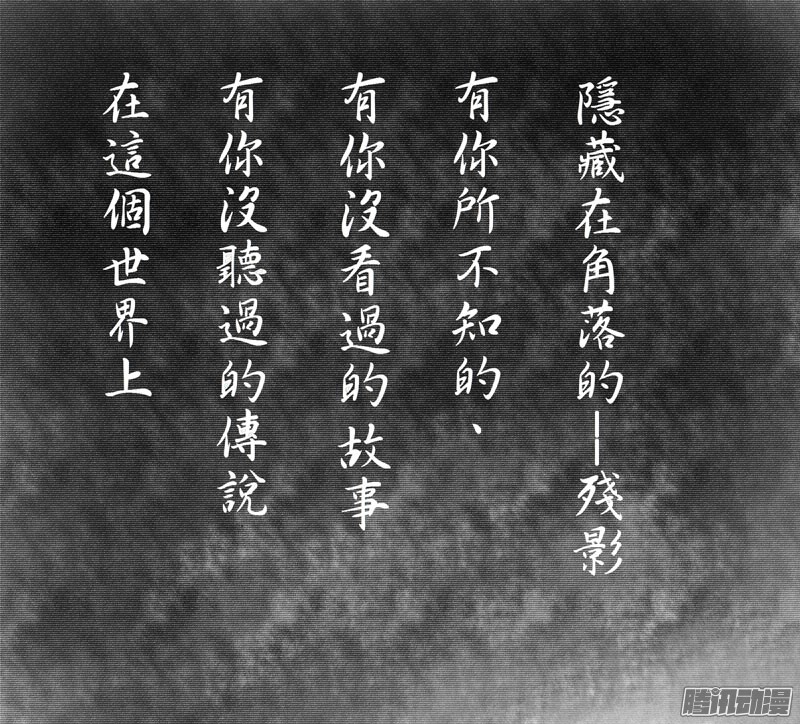 在這個世界上
有你沒聽過的傳說
有你沒看過的故事
有你所不知的、
隱藏在角落的—殘影
腾讯动漫